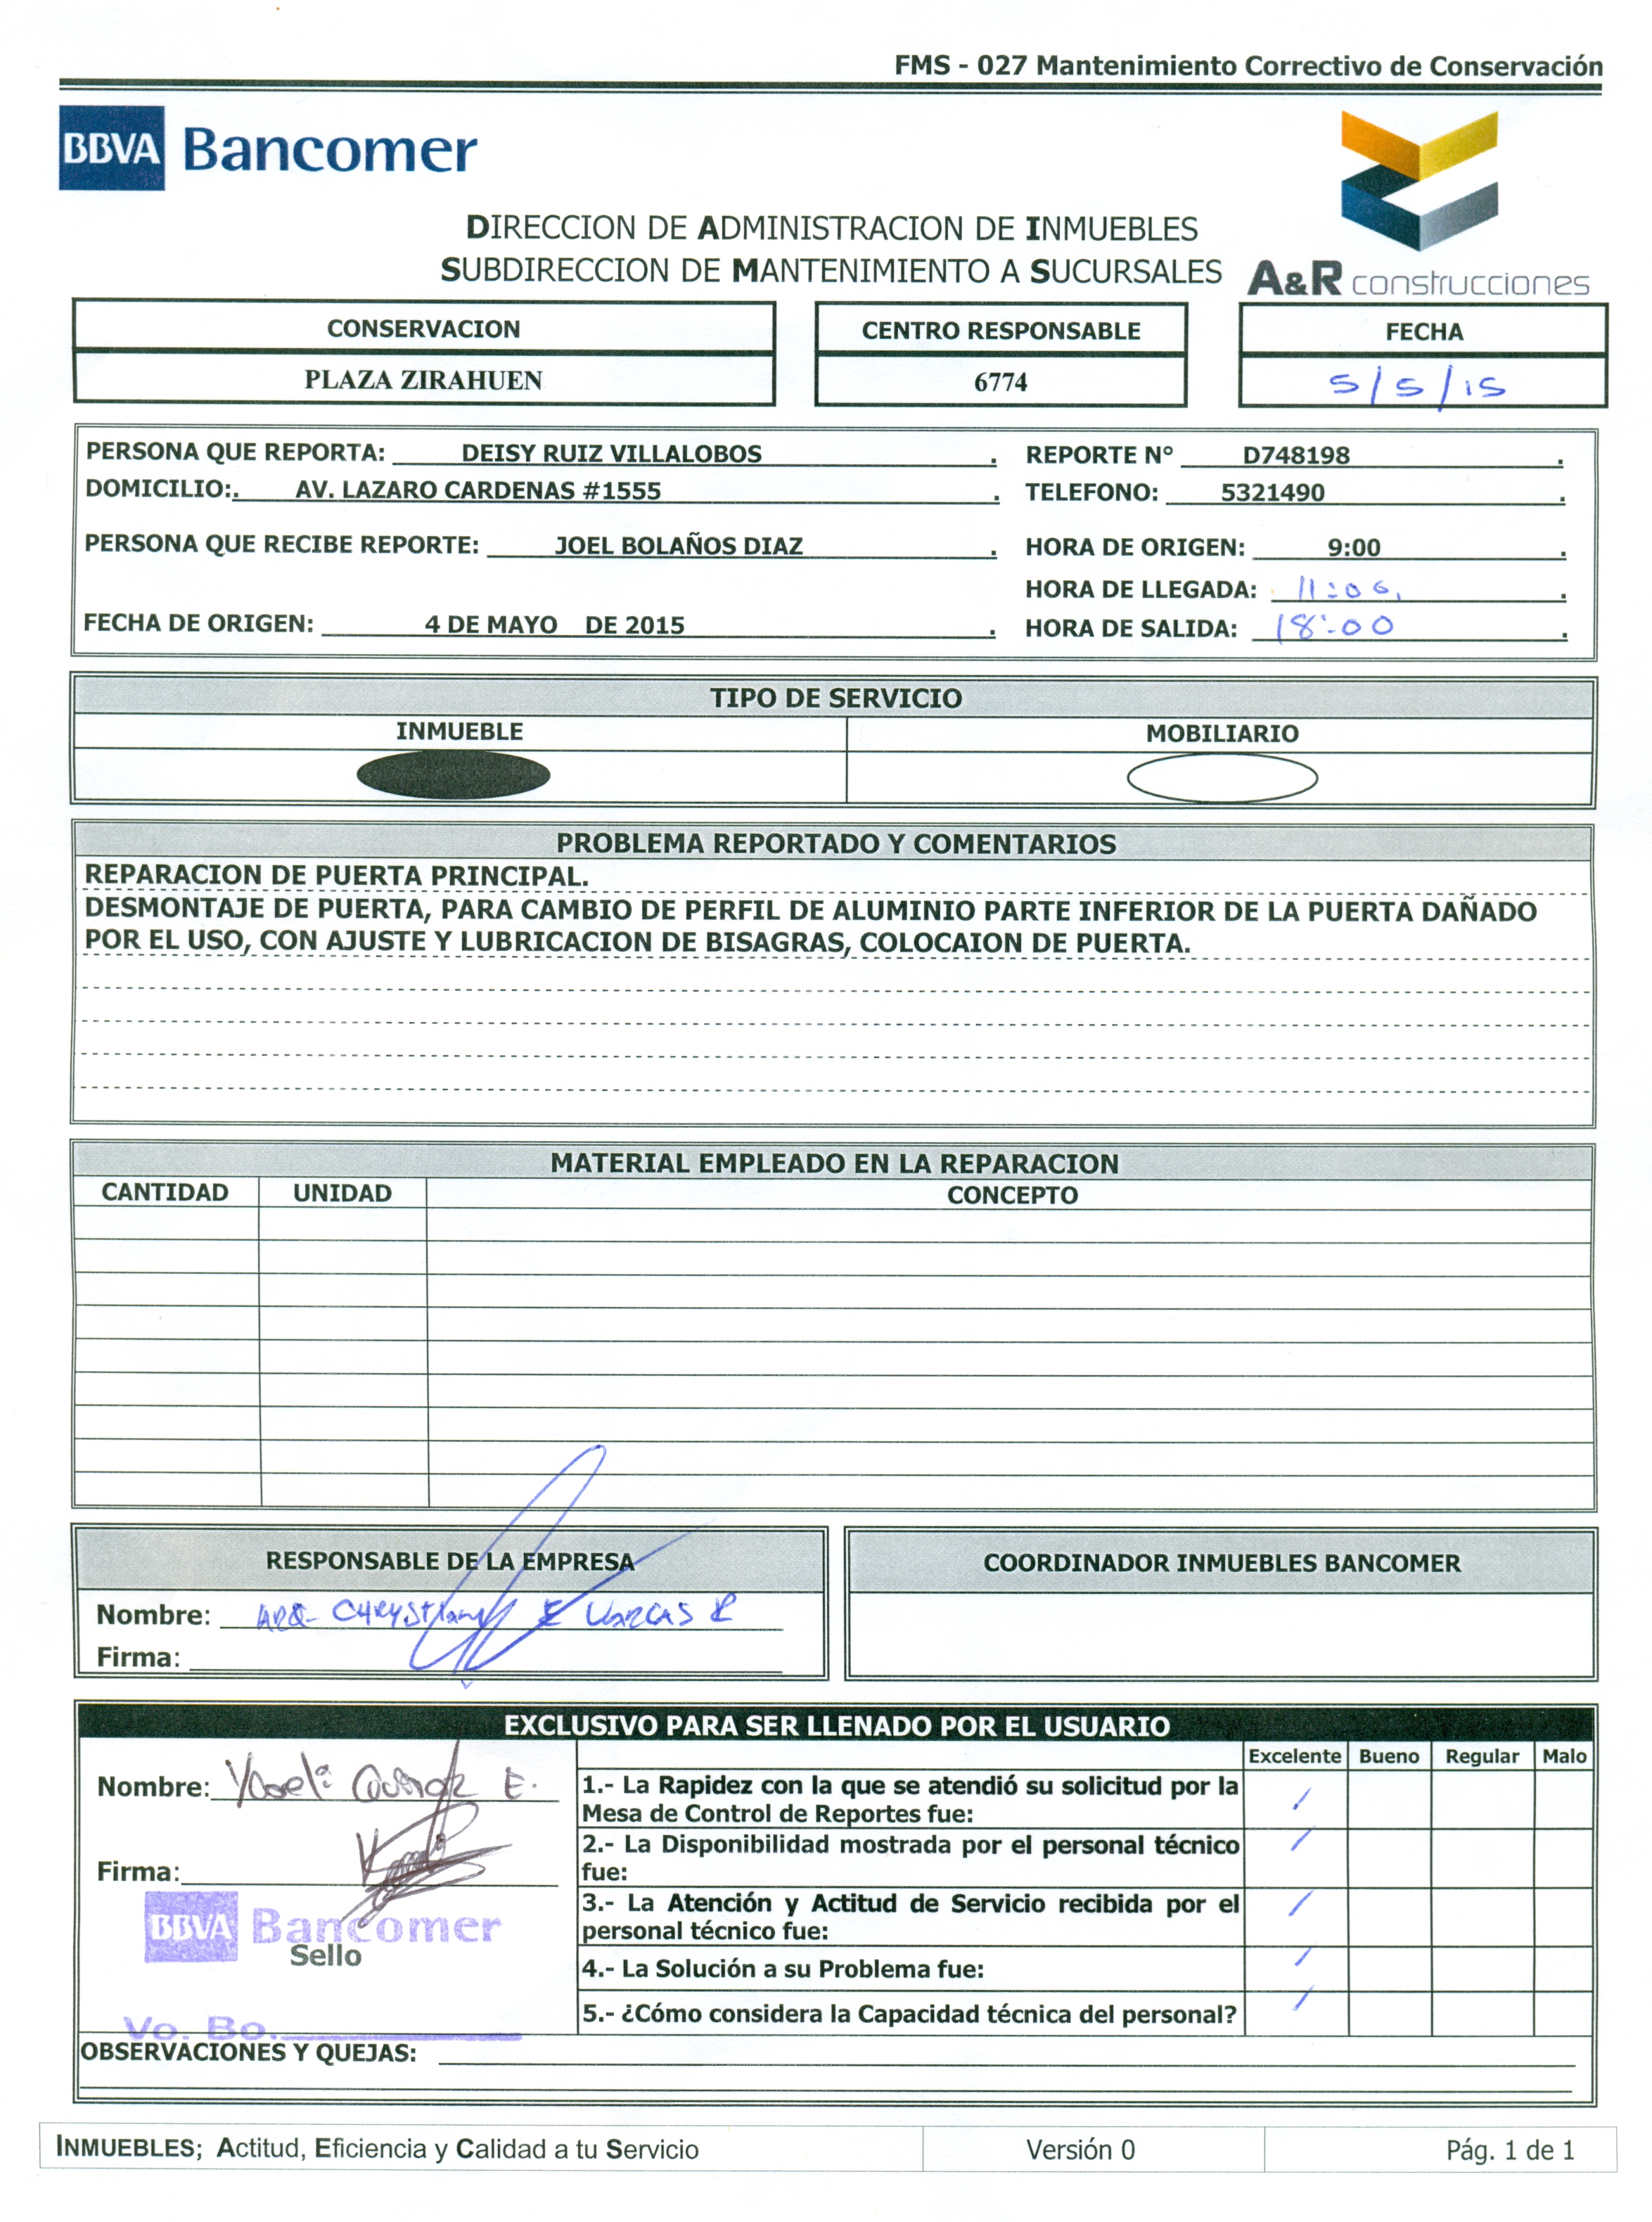 FMS - 027 Mantenimiento Correctivo de Conservación
BBVA Bancomer
DIRECCION DE ADMINISTRACION DE INMUEBLES
SUBDIRECCION DE MANTENIMIENTO A SUCURSALES
A&R construcciones
CONSERVACION CENTRO RESPONSABLE FECHA
PLAZA ZIRAHUEN 6774 5/5/15
PERSONA QUE REPORTA: DEISY RUIZ VILLALOBOS. REPORTE N° D748198.
DOMICILIO:. AV. LAZARO CARDENAS #1555. TELEFONO: 5321490.
PERSONA QUE RECIBE REPORTE: JOEL BOLAÑOS DIAZ. HORA DE ORIGEN: 9:00.
HORA DE LLEGADA: 11:00.
FECHA DE ORIGEN: 4 DE MAYO DE 2015. HORA DE SALIDA: 18:00.
TIPO DE SERVICIO
INMUEBLE MOBILIARIO
PROBLEMA REPORTADO Y COMENTARIOS
REPARACION DE PUERTA PRINCIPAL.
DESMONTAJE DE PUERTA, PARA CAMBIO DE PERFIL DE ALUMINIO PARTE INFERIOR DE LA PUERTA DAÑADO
POR EL USO, CON AJUSTE Y LUBRICACION DE BISAGRAS, COLOCAION DE PUERTA.
MATERIAL EMPLEADO EN LA REPARACION
CANTIDAD UNIDAD CONCEPTO
RESPONSABLE DE LA EMPRESA COORDINADOR INMUEBLES BANCOMER
Nombre: ARQ- CHRYSTIAN E VARGAS R
Firma:
EXCLUSIVO PARA SER LLENADO POR EL USUARIO
Excelente Bueno Regular Malo
Nombre: E.
1.- La Rapidez con la que se atendió su solicitud por la
Mesa de Control de Reportes fue:
2.- La Disponibilidad mostrada por el personal técnico
fue:
Firma:
3.- La Atención y Actitud de Servicio recibida por el
personal técnico fue:
BBVA Bancomer
Sello
4.- La Solución a su Problema fue:
5.- ¿Cómo considera la Capacidad técnica del personal?
Vo. Bo.
OBSERVACIONES Y QUEJAS:
INMUEBLES; Actitud, Eficiencia y Calidad a tu Servicio Versión 0 Pág. 1 de 1